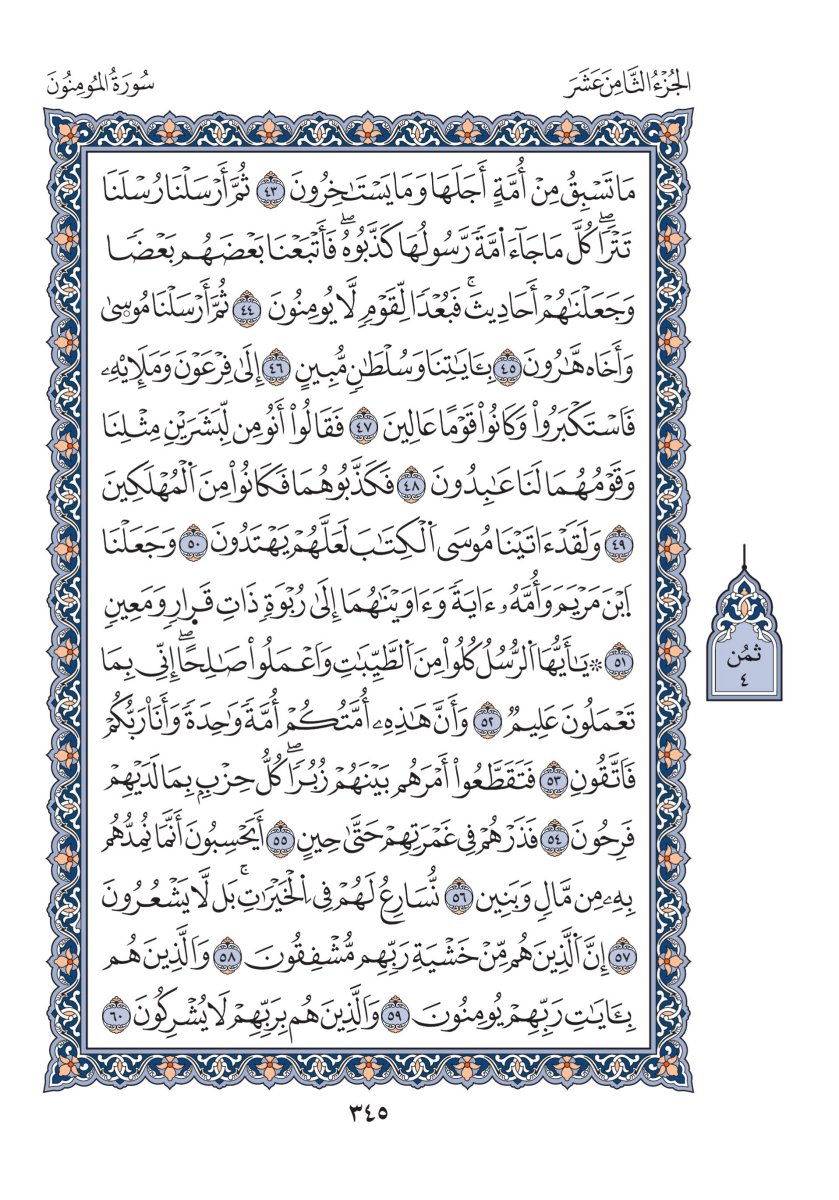 الجُزْءُ الثَّامِنَ عَشَرَ
سُورَةُ المُومِنُونَ
مَا تَسْبِقُ مِنْ أُمَّةٍ أَجَلَهَا وَمَا يَسْتَٰخِرُونَ ٤٣ ثُمَّ أَرْسَلْنَا رُسْلَنَا
تَتْرًاۖ كُلَّ مَا جَآءَ اُمَّةٗ رَّسُولُهَا كَذَّبُوهُۖ فَأَتْبَعْنَا بَعْضَهُم بَعْضٗا
وَجَعَلْنَٰهُمْ أَحَادِيثَۚ فَبُعْدٗا لِّقَوْمٖ لَّا يُومِنُونَ ٤٤ ثُمَّ أَرْسَلْنَا مُوسۭيٰ
وَأَخَاه هَّٰرُونَ ٤٥ بِـَٔايَٰتِنَا وَسُلْطَٰنٖ مُّبِينٍ ٤٦ إِلَىٰ فِرْعَوْنَ وَمَلَإِيْهِۦ
فَاَسْتَكْبَرُواْ وَكَانُواْ قَوْمًا عَالِينَ ٤٧ فَقَالُواْ أَنُومِن لِّبَشَرَيْنِ مِثْلِنَا
وَقَوْمُهُمَا لَنَا عَٰبِدُونَ ٤٨ فَكَذَّبُوهُمَا فَكَانُواْ مِنَ اَلْمُهْلَكِينَ
٤٩ وَلَقَدْ ءَاتَيْنَا مُوسَى اَلْكِتَٰبَ لَعَلَّهُمْ يَهْتَدُونَ ٥٠ وَجَعَلْنَا
اَبْنَ مَرْيَمَ وَأُمَّهُۥ ءَايَةٗ وَءَاوَيْنَٰهُمَا إِلَىٰ رُبْوَةٖ ذَاتِ قَرارٖ وَمَعِينٖ
٥١ ۞ يَٰأَيُّهَا اَلرُّسُلُ كُلُواْ مِنَ اَلطَّيِّبَٰتِ وَاَعْمَلُواْ صَٰلِحًاۖ إِنِّي بِمَا
تَعْمَلُونَ عَلِيمٞ ٥٢ وَأَنَّ هَٰذِهِۦ أُمَّتُكُمْ أُمَّةٗ وَٰحِدَةٗ وَأَنَا رَبُّكُمْ
فَاَتَّقُونِ ٥٣ فَتَقَطَّعُواْ أَمْرَهُم بَيْنَهُمْ زُبُرٗاۖ كُلُّ حِزْبِۭ بِمَا لَدَيْهِمْ
فَرِحُونَ ٥٤ فَذَرْهُمْ فِي غَمْرَتِهِمْ حَتَّىٰ حِينٍ ٥٥ أَيَحْسِبُونَ أَنَّمَا نُمِدُّهُم
بِهِۦ مِن مَّالٖ وَبَنِين ٥٦ نُّسَارِعُ لَهُمْ فِي اِلْخَيْرَٰتِۚ بَل لَّا يَشْعُرُونَ
٥٧ إِنَّ اَلَّذِينَ هُم مِّنْ خَشْيَةِ رَبِّهِم مُّشْفِقُونَ ٥٨ وَالَّذِينَ هُم
بِـَٔايَٰتِ رَبِّهِمْ يُومِنُونَ ٥٩ وَالَّذِينَ هُم بِرَبِّهِمْ لَا يُشْرِكُونَ ٦٠
ثمُن
٤
٣٤٥